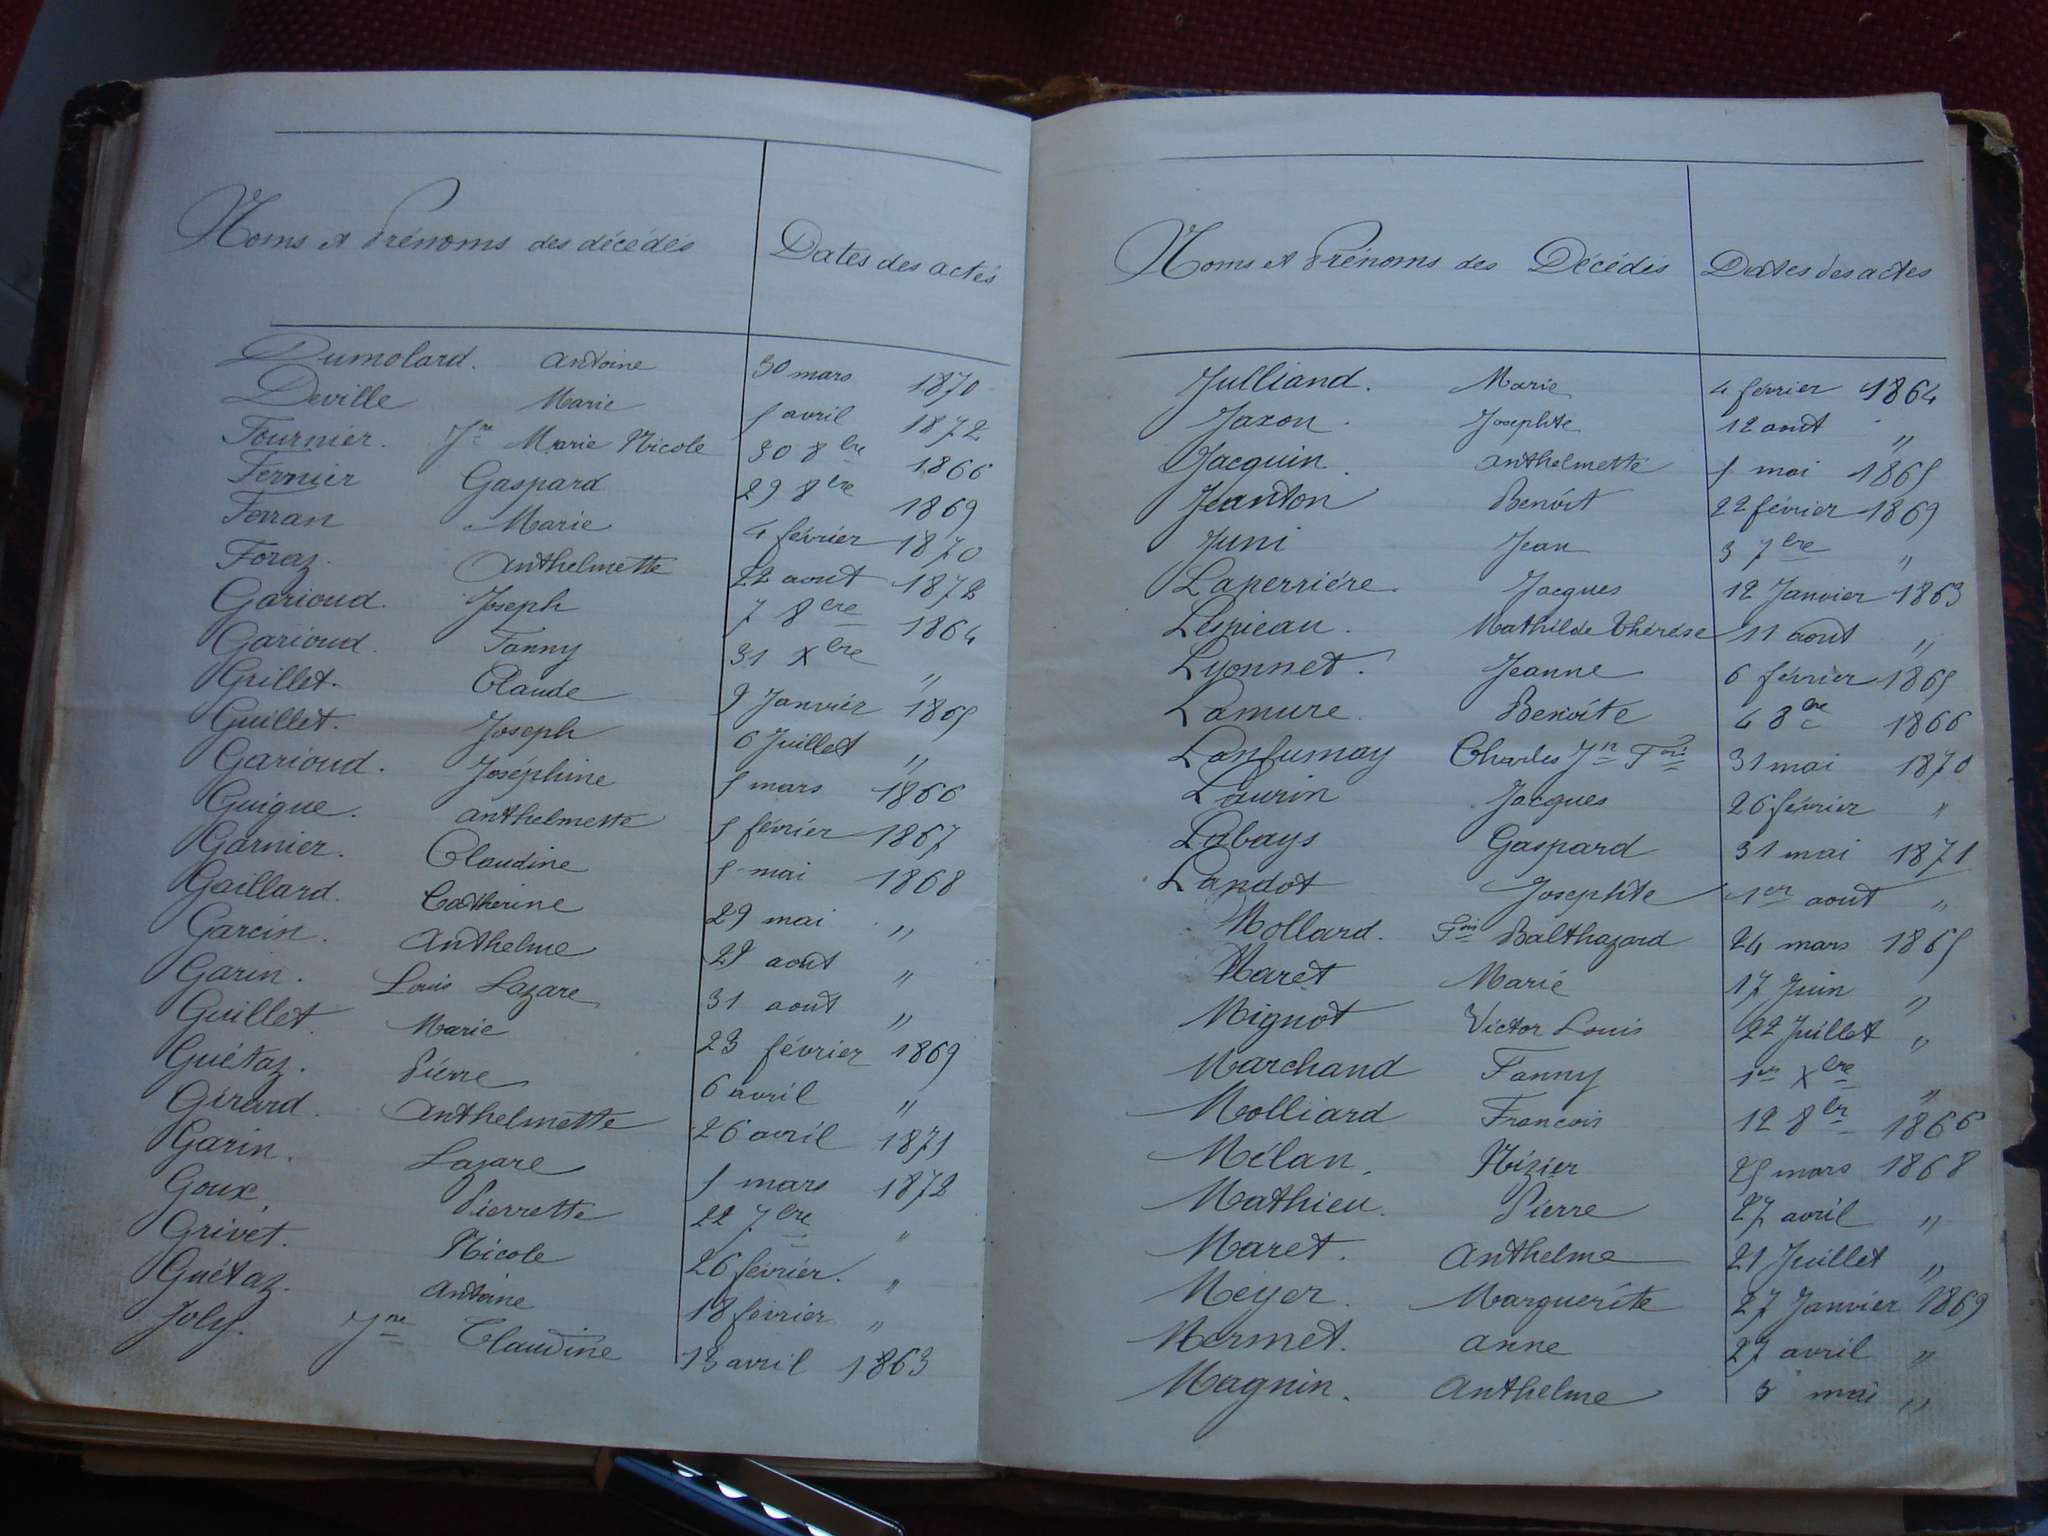 Noms et Prénoms des décédés Dates des actes
Dumolard. Antoine 30 mars 1870
Deville Marie 5 avril 1872
Fournier. Jne Marie Nicole 30 8bre 1866
Fernier Gaspard 29 8bre 1869
Ferran Marie 4 février 1870
Foraz. Anthelmette 22 aout 1872
Garioud. Joseph 7 8bre 1864
Garioud. Fanny 31 Xbre "
Grillet. Claude 9 Janvier 1865
Guillet. Joseph 6 Juillet "
Garioud. Joséphine 5 mars 1866
Guigue. Anthelmette 5 février 1867
Garnier. Claudine 5 mai 1868
Gaillard. Catherine 29 mai "
Garcin. Anthelme 29 aout "
Garin. Louis Lazare 31 aout "
Guillet. Marie 23 février 1869
Guétaz. Pierre 6 avril "
Girard. Anthelmette 26 avril 1871
Garin. Lazare 5 mars 1872
Goux. Pierrette 22 7bre "
Grivet. Nicole 26 février. "
Guétaz. Antoine 18 février "
Joly. Jne Claudine 13 avril 1863
Noms et Prénoms des Décédés Dates des actes
Julliand. Marie 4 février 1864
Jaxon. Josephte 12 aout "
Jacquin. Anthelmette 5 mai 1865
Jeanton Benoit 22 février 1869
Juni Jean 3 7bre "
Laperriére. Jacques 12 Janvier 1863
Lespieau. Mathilde Thérése 11 aout "
Lyonnet. Jeanne 6 février 1865
Lamure. Benoîte 4 8bre 1866
Lanfumay Charles Jn Fois 31 mai 1870
Laurin Jacques 26 février "
Labays Gaspard 31 mai 1871
Landot Josephte 1er aout "
Mollard. Fois Balthazard 24 mars 1865
Maret Marie 17 Juin "
Mignot Victor Louis 22 Juillet "
Marchand Fanny 1er Xbre "
Molliard Francois 12 8br 1866
Mélan. Nizier 25 mars 1868
Mathieu. Pierre 27 avril "
Maret. Anthelme 21 Juillet "
Meyer. Marguerite 27 Janvier 1869
Mermet. Anne 27 avril "
Magnin. Anthelme 3 mai "